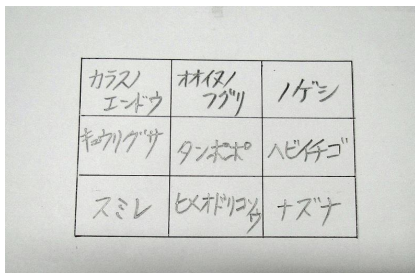 カラスノ
エンドウ
オオイヌノ
フグリ
ノゲシ
キュウリグサ
タンポポ
ヘビイチゴ
スミレ
ヒメオドリコソウ
ナズナ